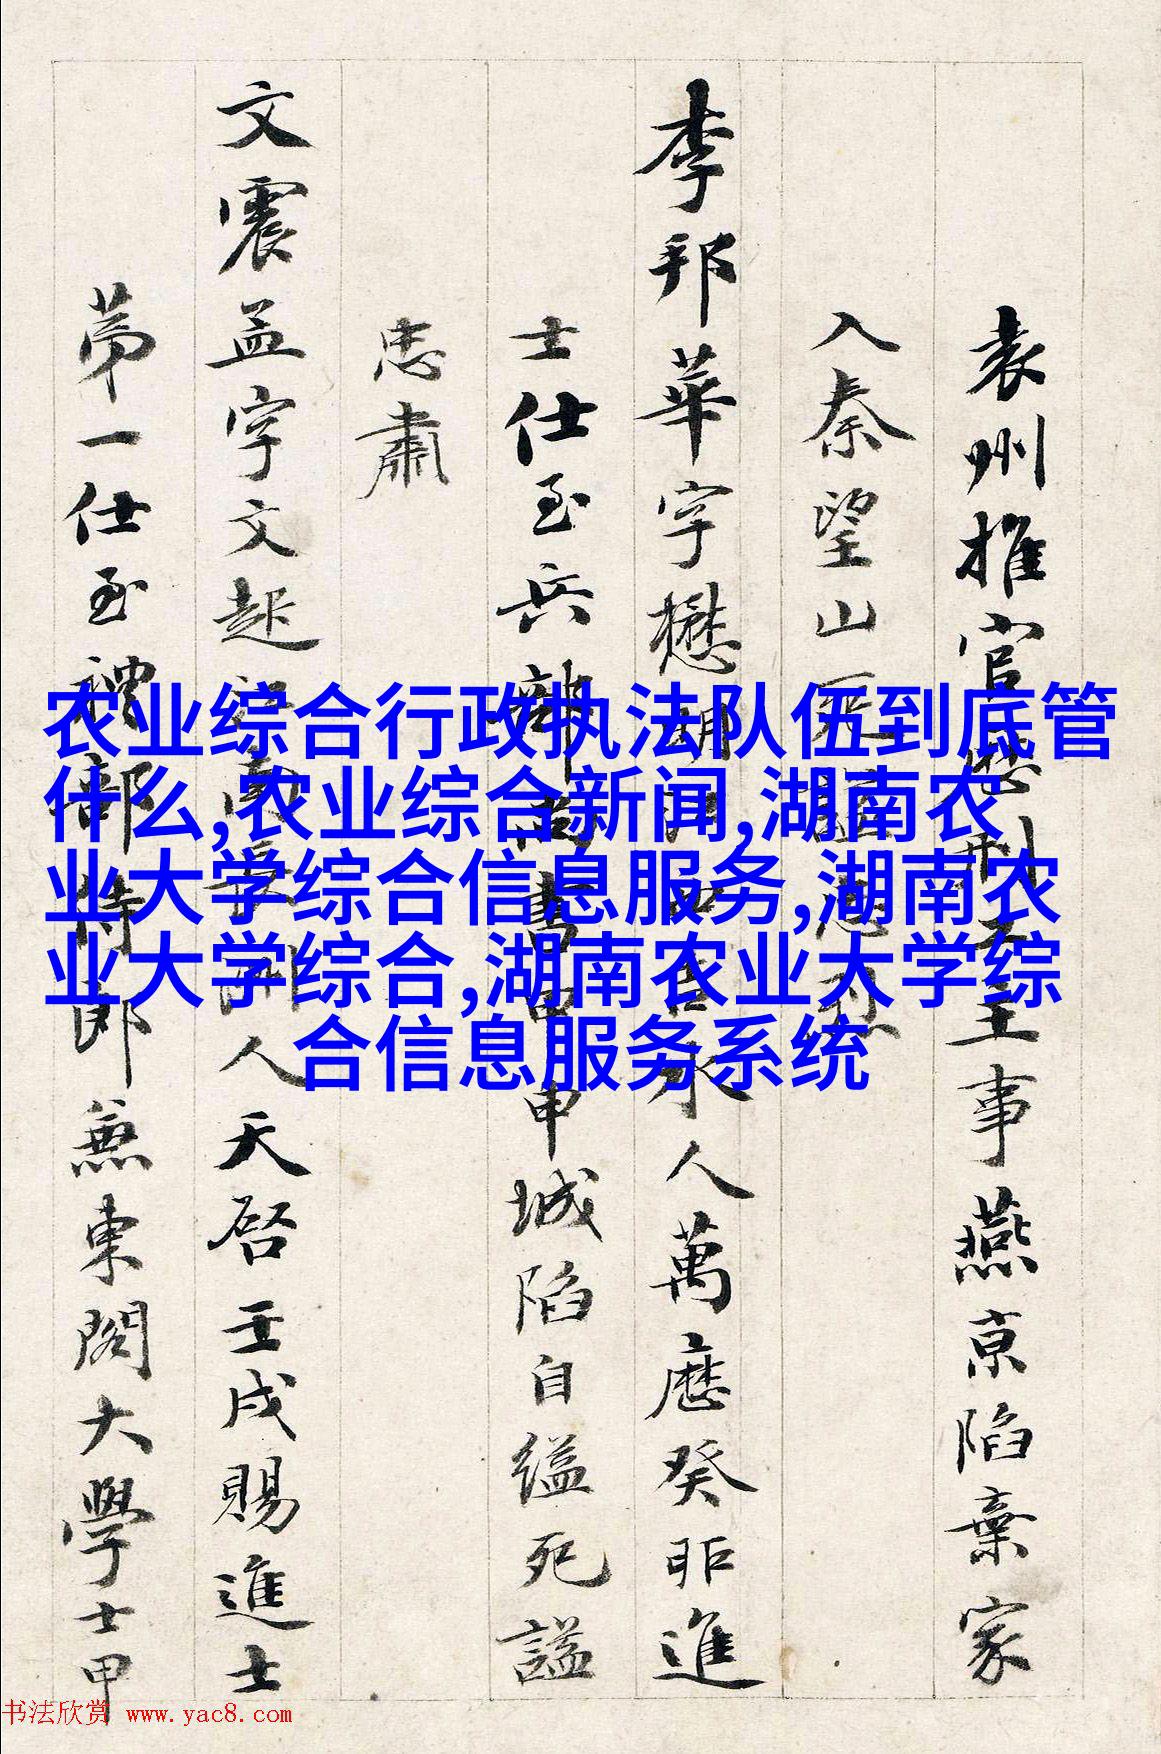 袁州推官歷刑主事燕京陷棄家
入秦望山不
李邦華字懋明吉水人萬歷癸卯進
士仕至兵部尚書甲申城陷自縊死謚
忠肅
文震孟字文起人天啓壬戌賜進士
第一仕至禮部侍郎兼東閣大學士甲
农业综合行政执法队伍到底管
什么,农业综合新闻,湖南农
业大学综合信息服务,湖南农
业大学综合,湖南农业大学综
合信息服务系统
书法欣赏 www.yac8.com